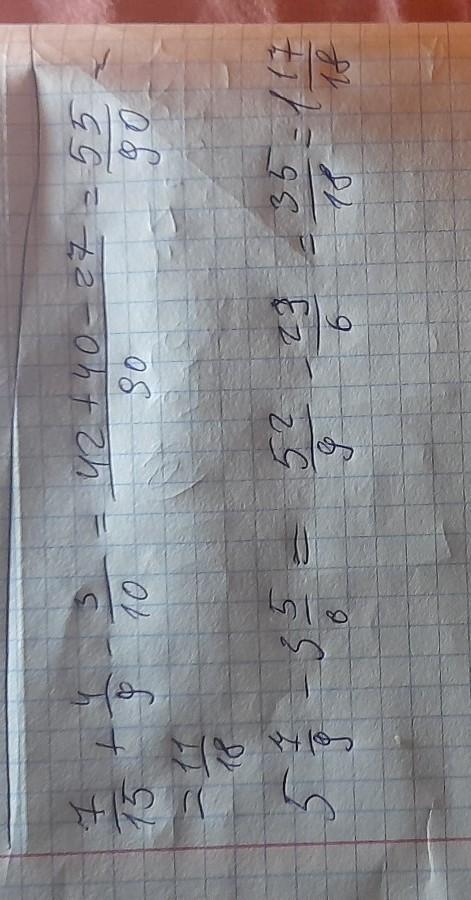 7/15 + 4/9 - 3/10 = (42 + 40 - 27)/90 = 55/90 =
= 11/18
5 7/9 - 3 5/6 = 52/9 - 23/6 = 35/18 = 1 17/18